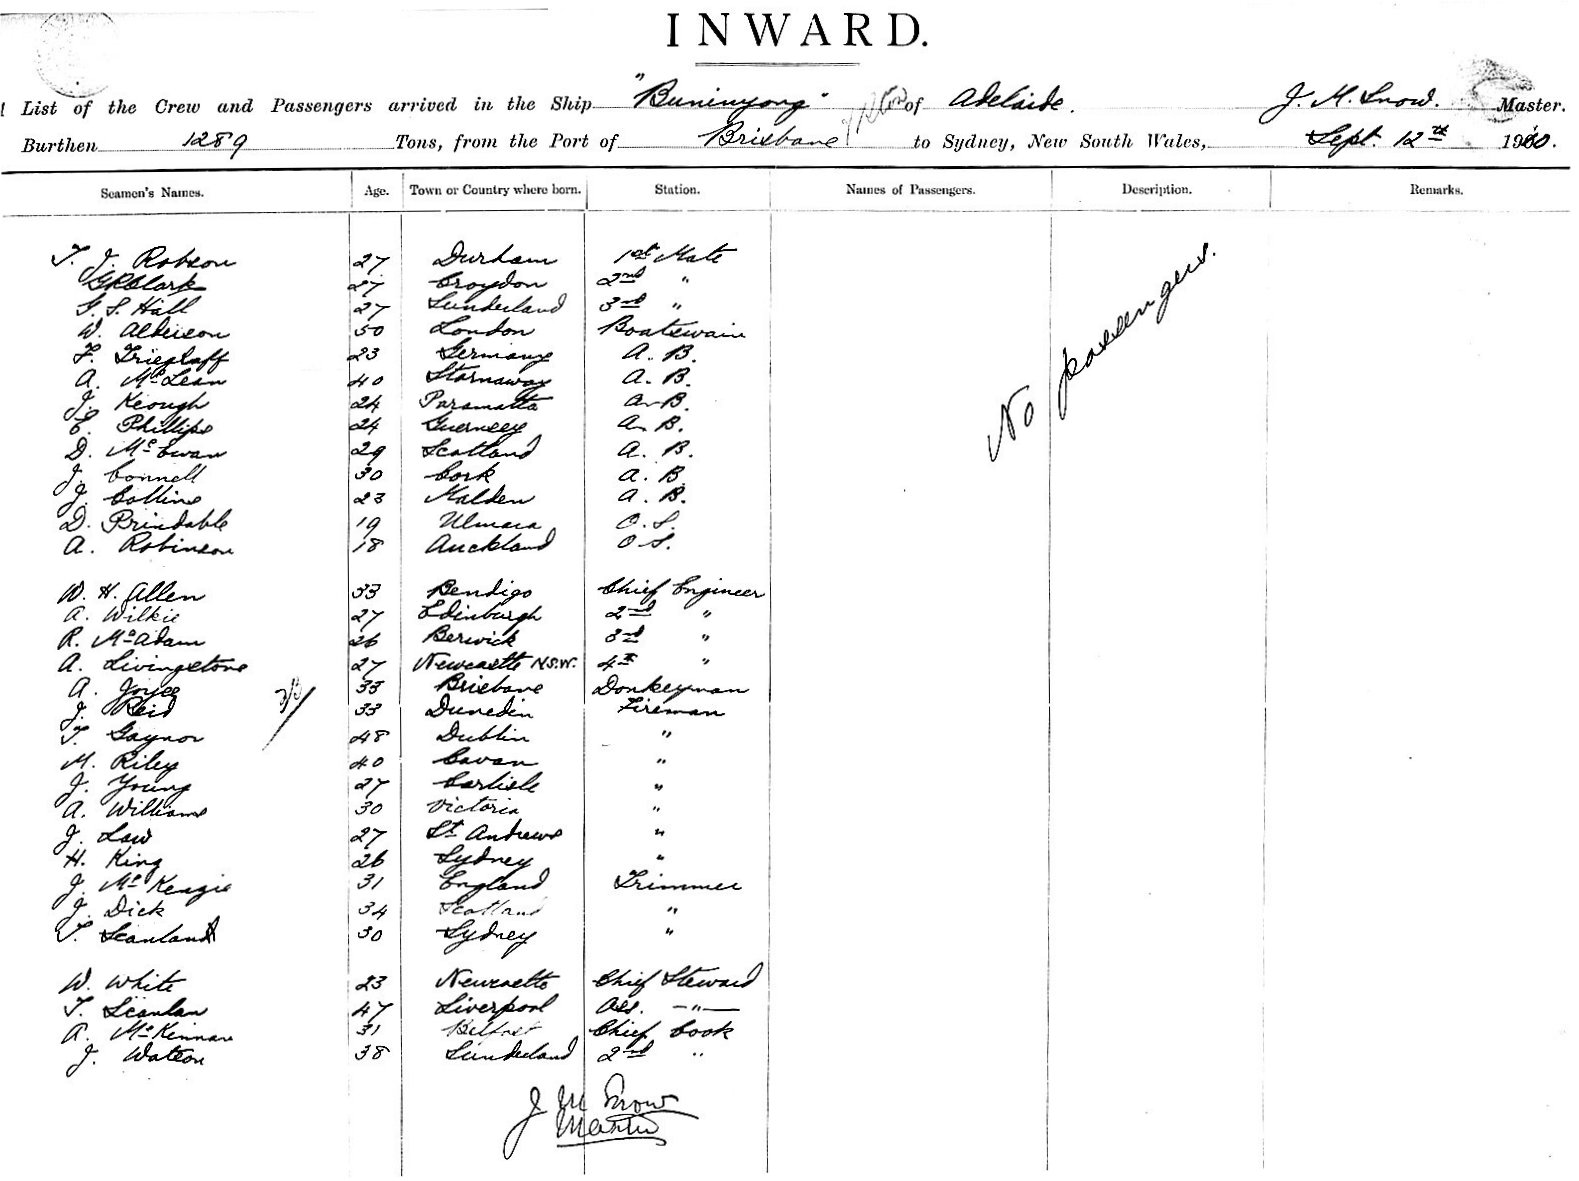 INWARD.
List of the Crew and Passengers arrived in the Ship "Buninyong" of Adelaide. J. M. Snow. Master.
Burthen 1289 Tons, from the Port of Brisbane to Sydney, New South Wales, Sept. 12th 1900.
Seamen's Names. Age. Town or Country where born. Station. Names of Passengers. Description. Remarks.
T. J. Robson 27 Durham 1st Mate
G R Clark 27 Croydon 2nd "
G. S. Hall 27 Sunderland 3rd "
W. Alderson 50 London Boatswain
F. Trieglaff 23 Germany A. B.
A. McLean 40 Stornaway A. B.
J. Keough 24 Paramatta A. B.
E. Phillips 24 Guernsey A. B.
D. McEwan 29 Scotland A. B.
J. Connell 30 Cork A. B.
J. Collins 23 Malden A. B.
D. Prindable 19 Ulmara O. S.
A. Robinson 18 Auckland O. S.
No passengers.
W. H. Allen 33 Bendigo Chief Engineer
A. Wilkie 27 Edinburgh 2nd "
R. McAdam 26 Berwick 3rd "
A. Livingstone 27 Newcastle N.S.W. 4th "
A. Joyce 33 Brisbane Donkeyman
J. Reid 33 Dunedin Fireman
T. Gaynor 48 Dublin "
M. Riley 40 Cavan "
J. Young 27 Carlisle "
A. Williams 30 Victoria "
J. Law 27 St Andrews "
H. King 26 Sydney "
J. McKenzie 31 England Trimmer
J. Dick 34 Scotland "
T. Scanland 30 Sydney "
W. White 23 Newcastle Chief Steward
T. Scanlan 47 Liverpool Ass. —"—
A. McKinnan 31 Belfast Chief Cook
J. Watson 38 Sunderland 2nd "
J M Snow
Master